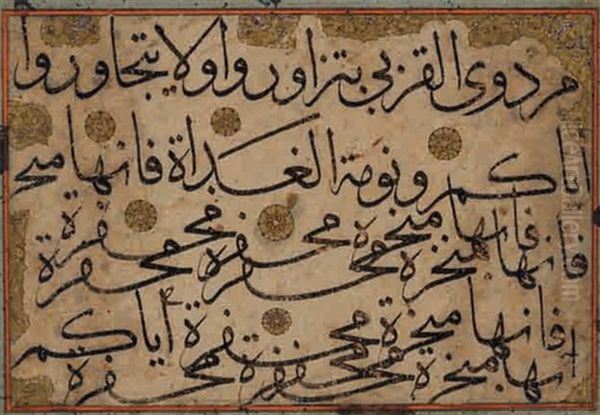 مر ذوى القربى يتزاوروا ولا يتجاوروا
اياكم ونومة الغداة فانها مبخر
فانها فانها مبخرة مجفرة مجفرة
مبخرة مجفرة مجفرة
فانها مبخرة مجفرة اياكم
نها مبخرة مجفرة مجفرة